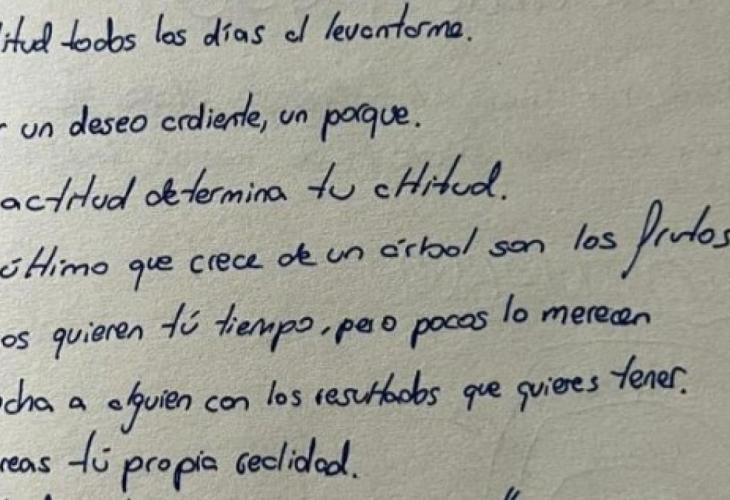 itud todos los días al levantarme.
r un deseo ardiente, un porque.
actitud determina tu altitud.
último que crece de un árbol son los frutos
os quieren tú tiempo, pero pocos lo merecen
cha a alguien con los resultados que quieres tener.
reas tú propia realidad.